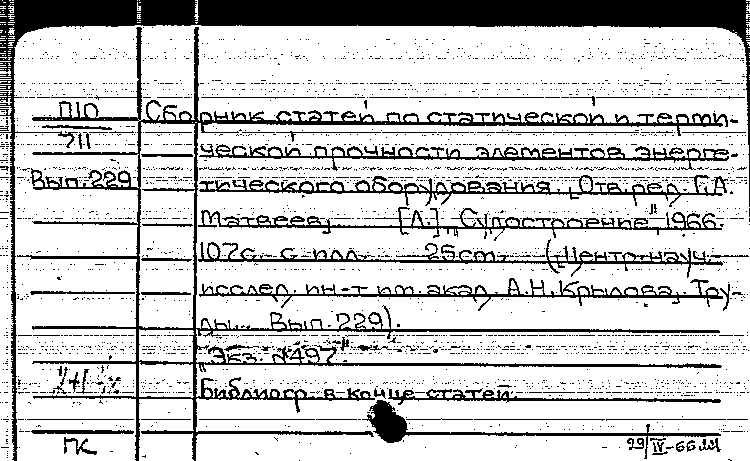 П10 Сборник статей по статической и терми-
711 ческой прочности элементов энерге-
Вып. 229 тического оборудования. [Отв. ред. Г.А.
Матвеев]. [Л.], "Судостроение", 1966.
107 с. с илл. 25 см. (Центр. науч.-
исслед. ин-т им. акад. А.Н. Крылова. Тру-
ды... Вып. 229).
"Экз. №497".
Библиогр. в конце статей
ПК 29/IV-66